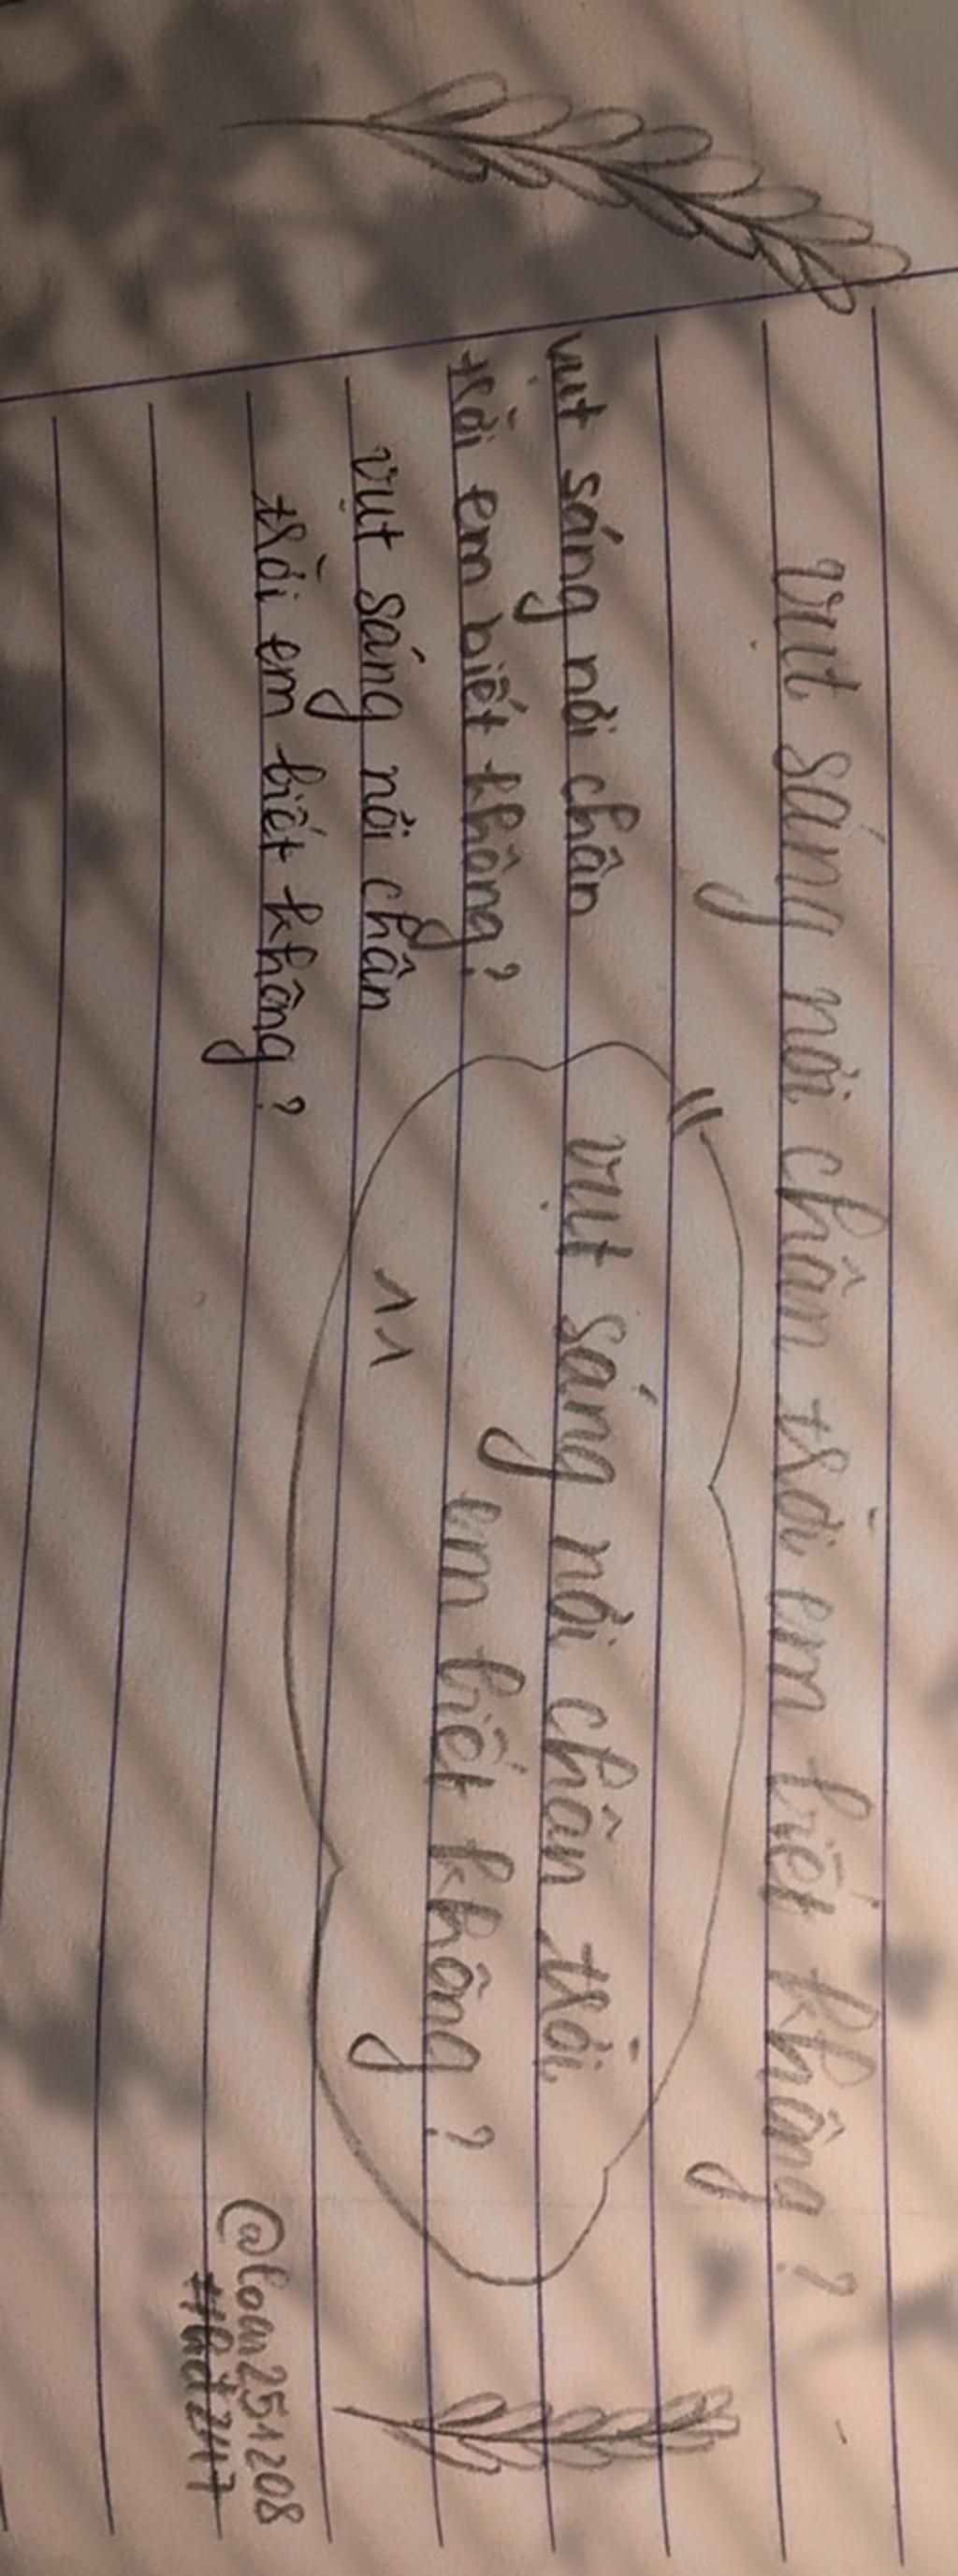 vụt sáng nơi chân trời em biết không?
vụt sáng nơi chân
trời em biết không?
vụt sáng nơi chân
trời em biết không?
vụt sáng nơi chân trời
em biết không?
@loan251208